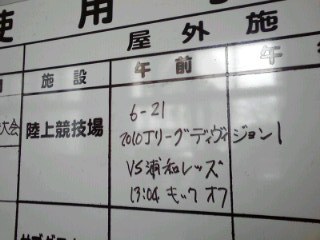 使用
屋外施
施設 午前 午
大会 陸上競技場
6-21
2010Jリーグディヴィジョン1
VS浦和レッズ
13:04 キックオフ